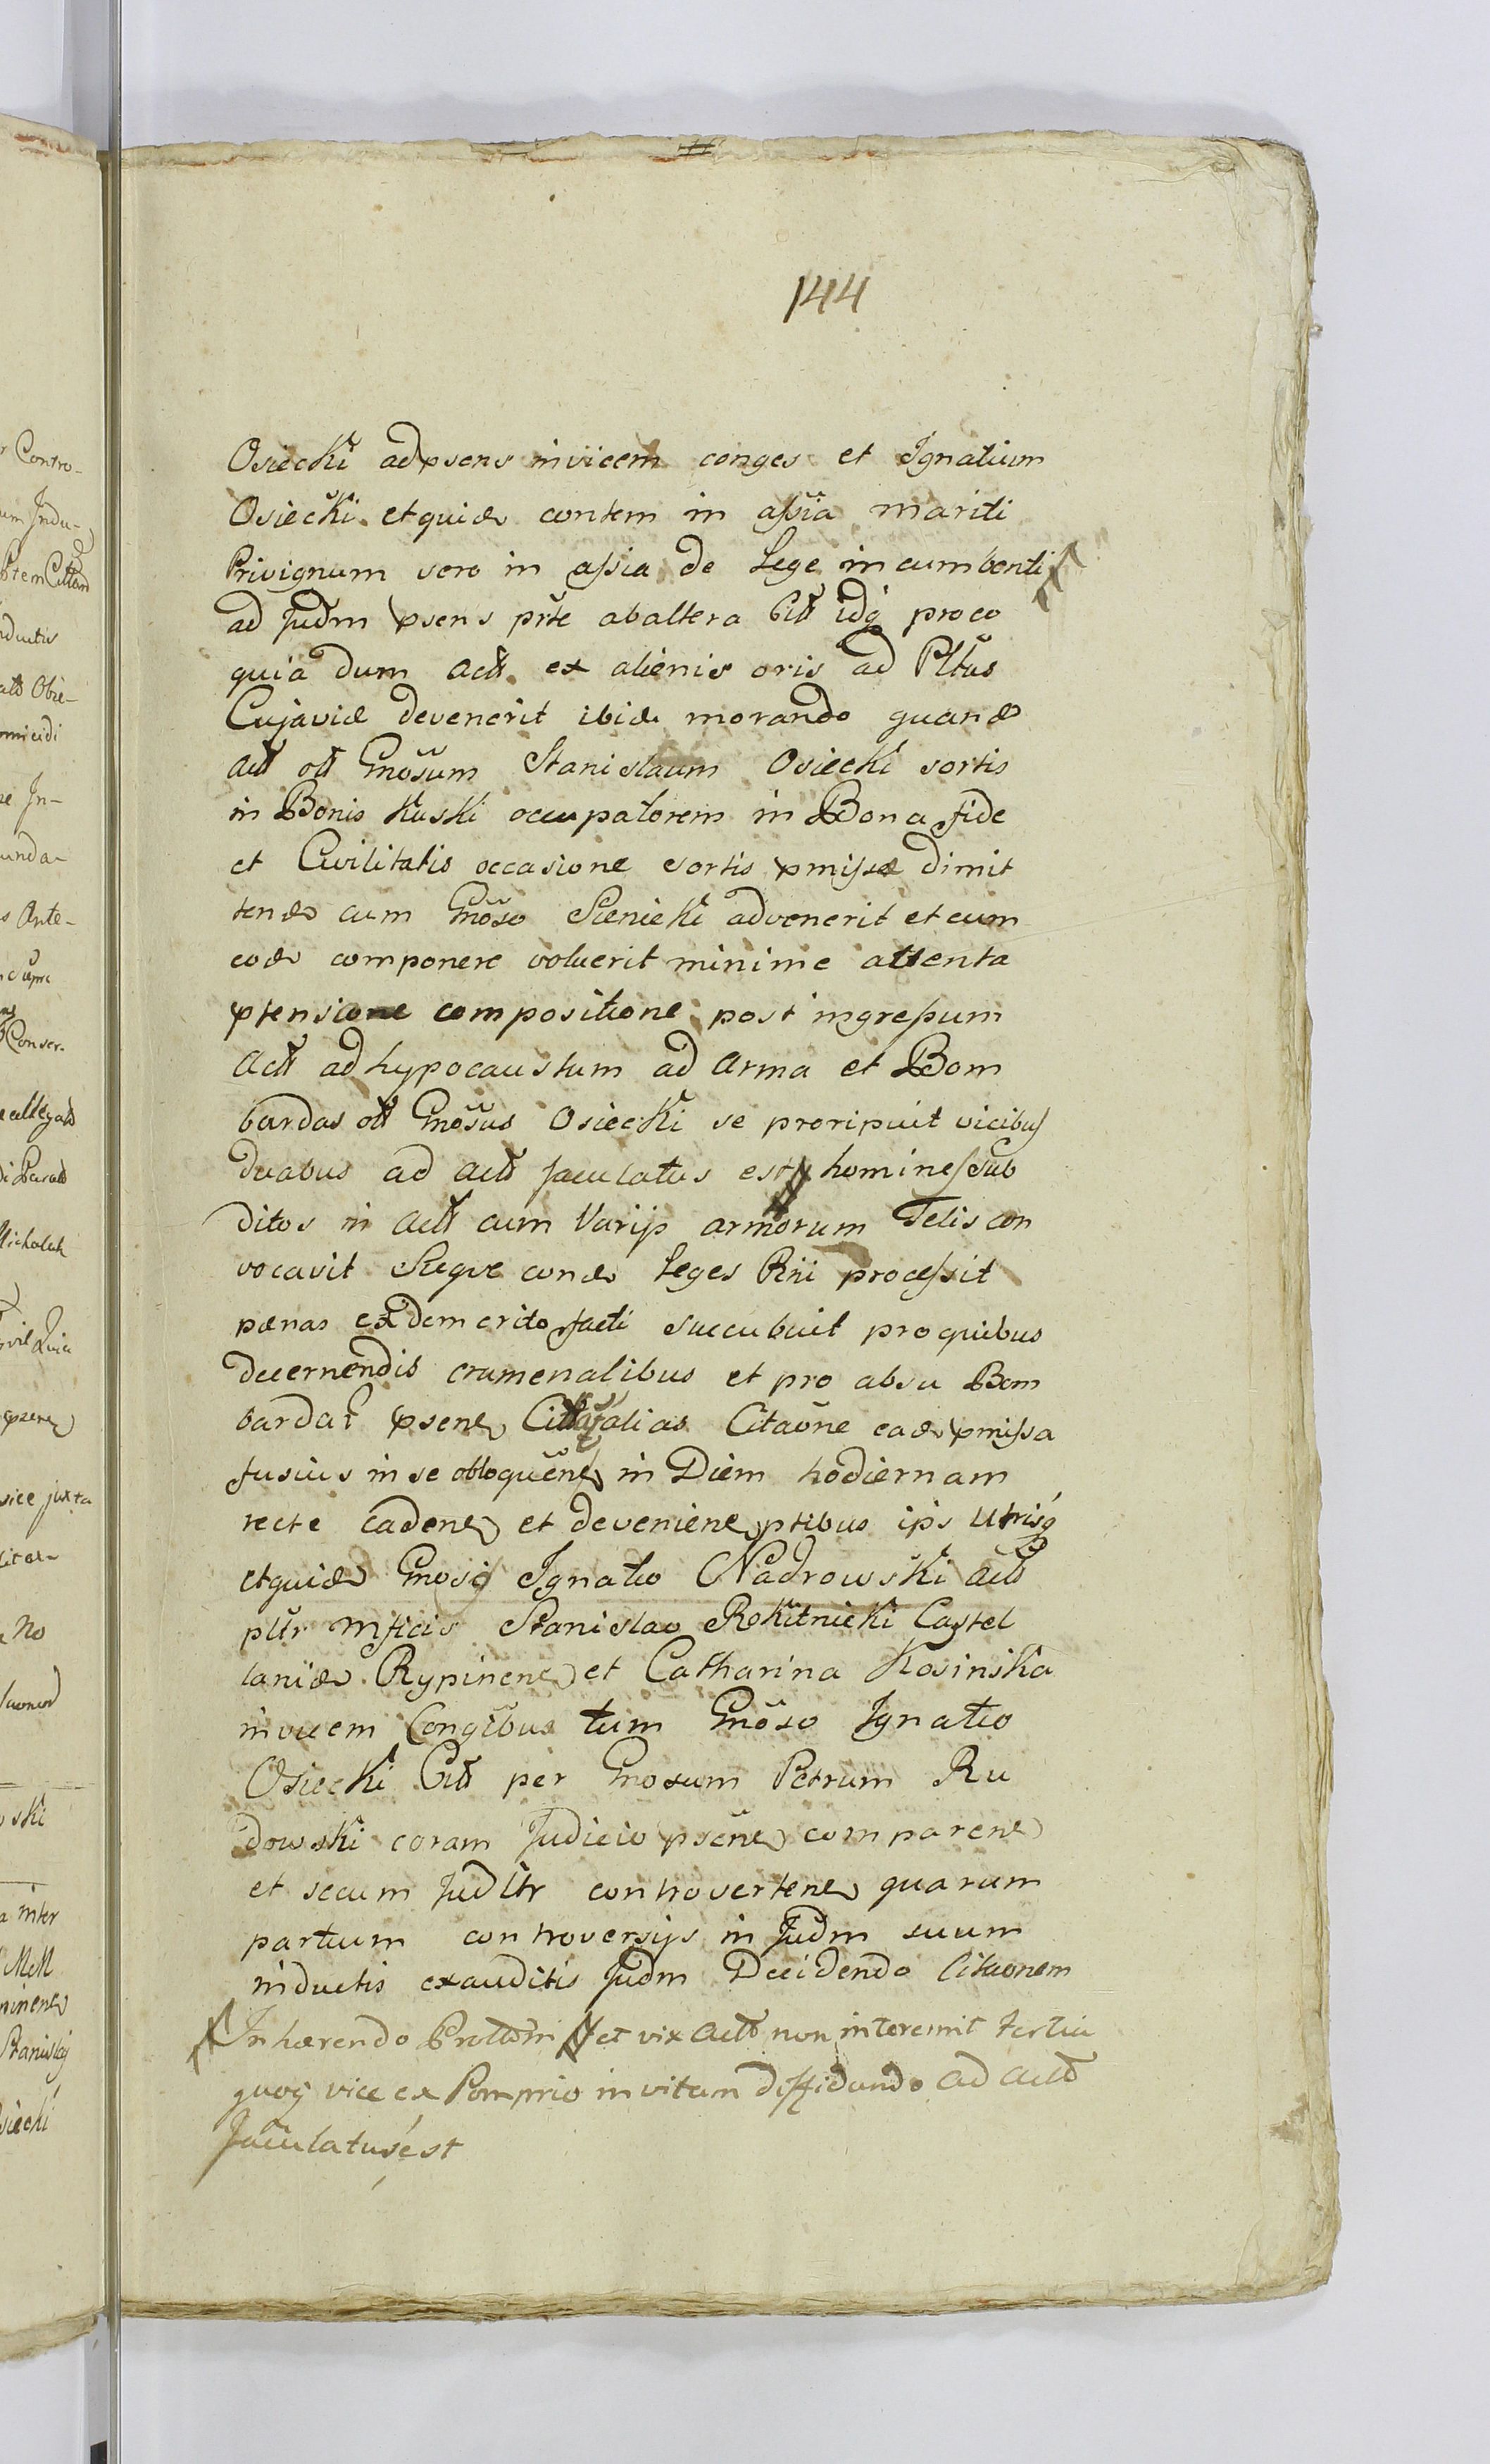 144
Osiecki ad psens invicem conges et Ignatium
Osiecki et quide contem in assia mariti
Privignum vero in assia de Lege incumbenti
ad Judm psens prte ab altera Citt idq pro eo
quia dum Actt ex alienis oris ad Pltus
Cujaviæ devenerit ibide morando quande
Actt ott Gnosum Stanislaum Osiecki sortis
in Bonis Kuski occupatorem in Bona fide
et Civilitatis occasione sortis pmissæ dimit
tende cum Gnoso Sienicki advenerit et cum
eode componere voluerit minime attenta
ptensione compositione post ingressum
Actt ad hypocaustum ad arma et Bom
bardas ott Gnosus Osiecki se proripuit vicibus
duabus ad Actt jaculatus est homines sub
ditos in Actt cum Varijs armorum Telis con
vocavit Sicqve conde Leges Rni processit
pænas ex demerito facti succubuit pro quibus
decernendis crimenalibus et pro absu Bom
bardar psene alias Citaone eade pmissa
fusius in se obloquene in Diem hodiernam
recte cadene et deveniene ptibus ips Utrisq
et quide Gnosis Ignatio Nadrowski Actt
pltr Mficis Stanislao Rokitnicki Castel
lanide Rypinene et Catharina Kosinska
invicem Congibus tum Gnoso Ignatio
Osiecki Citt per Gnosum Petrum Ru
dowski coram Judicio psene comparene
et secum Judltr controvertene quarum
partium controversijs in Judm suum
inductis exauditis Judm Decidendo Citaonem
Inhærendo Prottni et vix Actt non interemit tertia
quoq vice ex Pomprio in vitam diffidando ad Actt
Jaculatus est